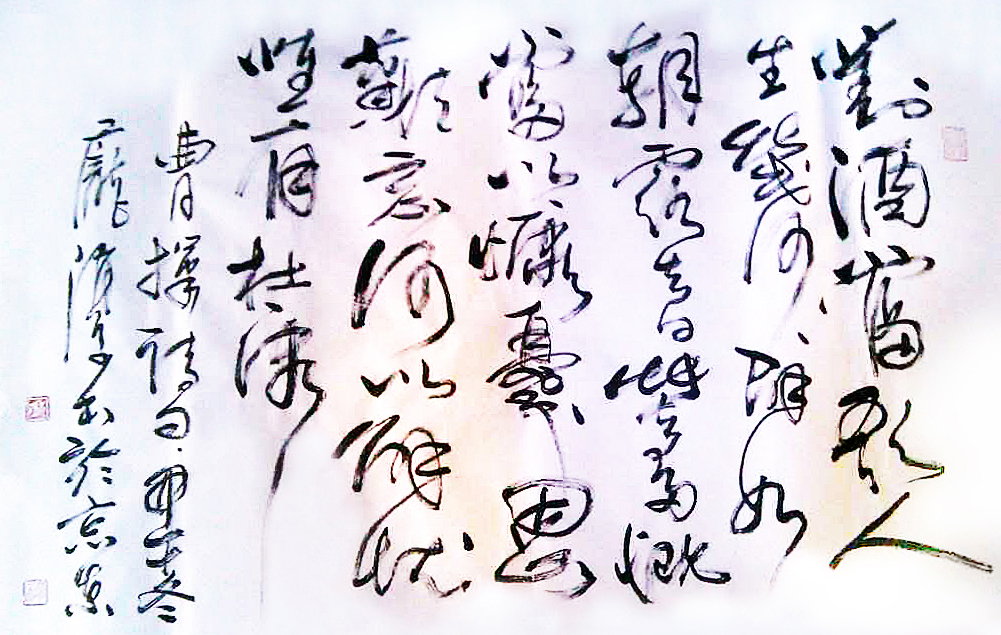 對酒當歌人
生幾何譬如
朝露去日苦多慨
當以慷憂思
難忘何以解忧
惟有杜康
曹操詩句 冬
龐 書於京